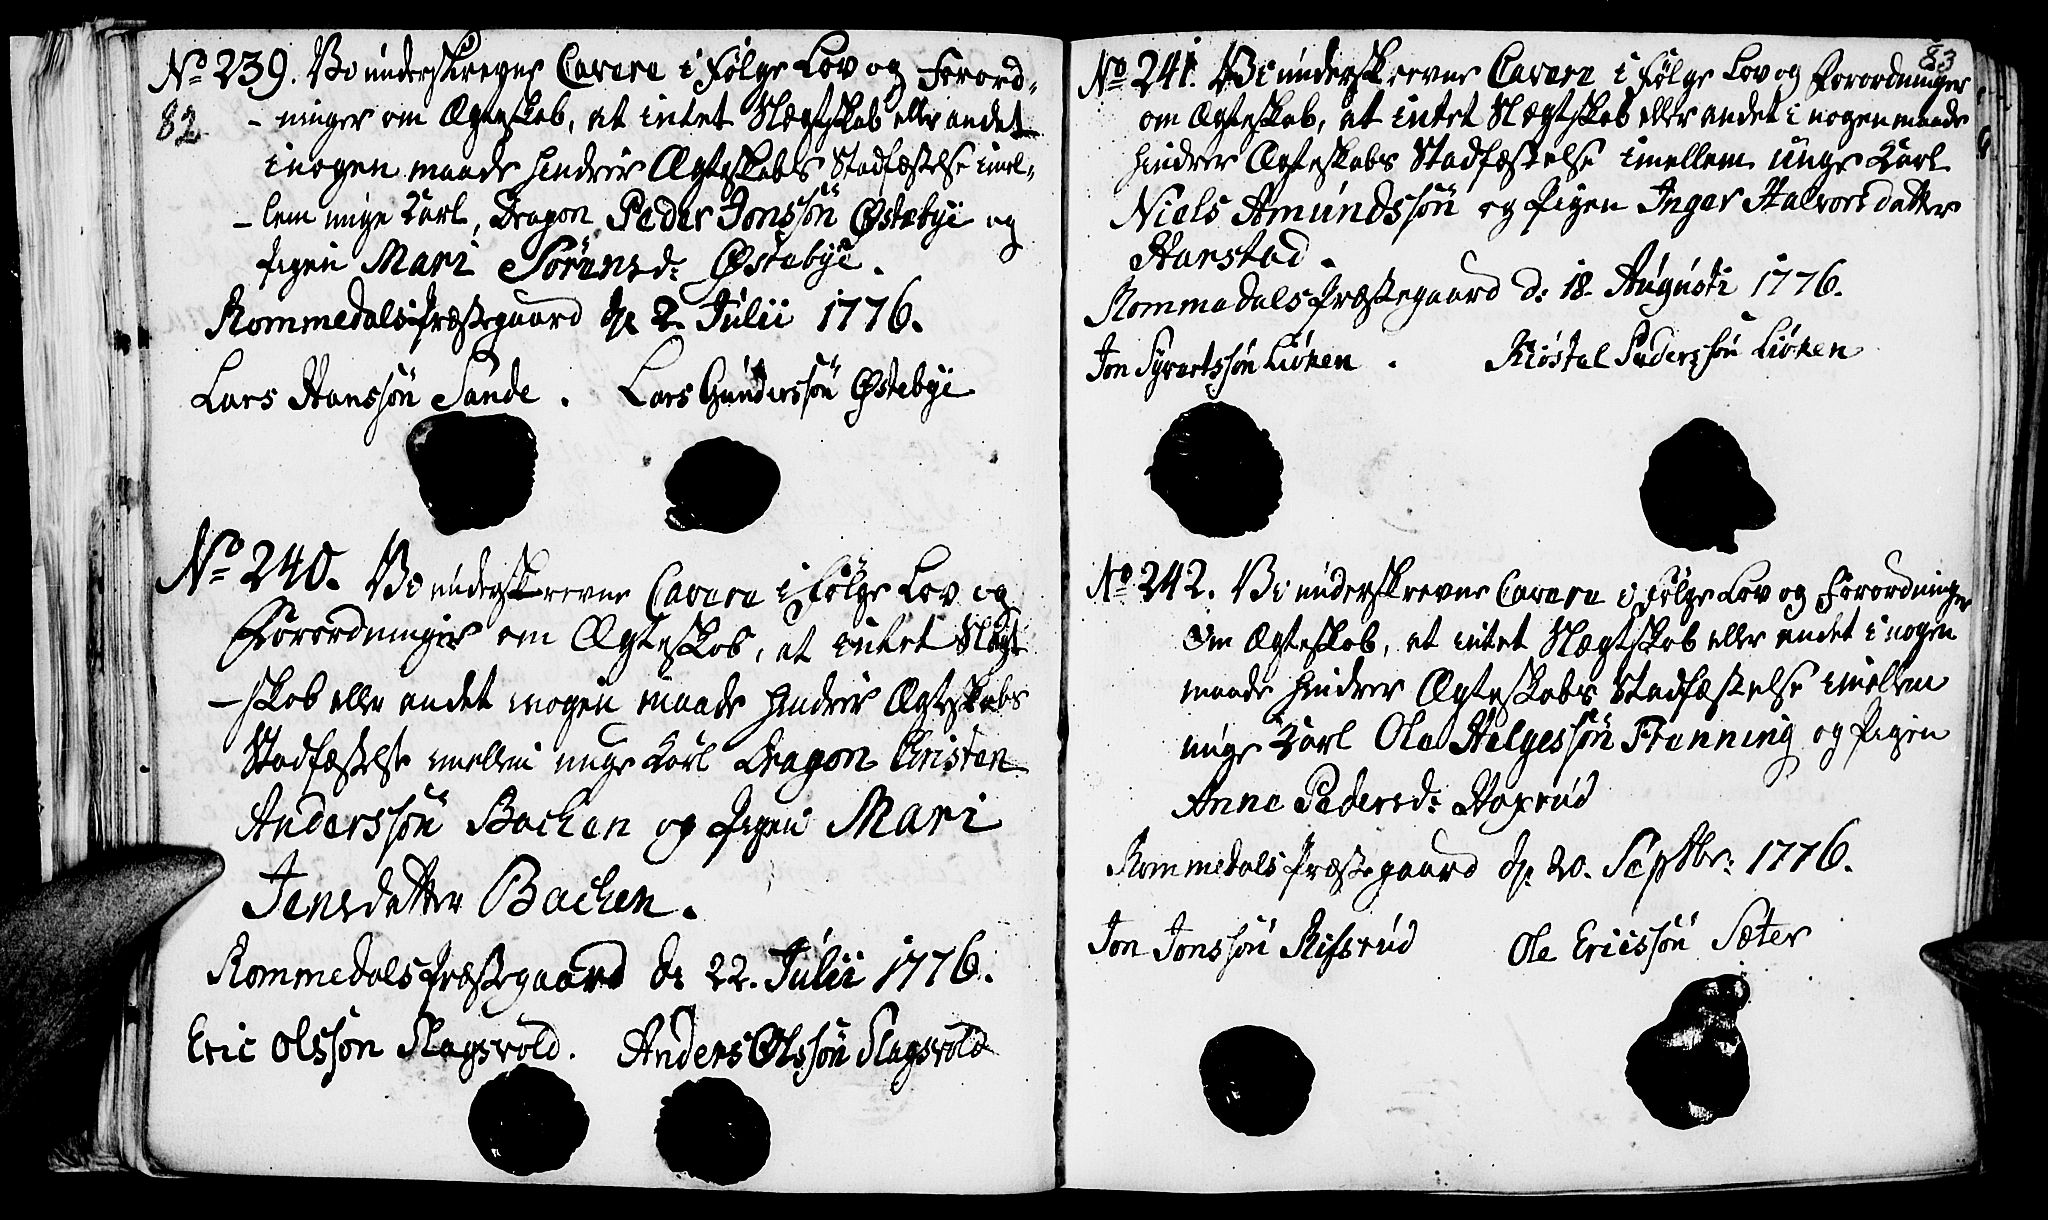 82
No 239. Vi underskrevne Cavere i Følge Lov og Forord-
-ninger om Ægteskab, at intet Slægtskab eller andet
i nogen maade hindrer Ægteskabs Stadfæstelse imel-
-lem unge Karl, Dragon Peder Jonssøn Østebye og
Pigen Mari Sørensd: Østebye.
Rommedals Præstegaard d. 2. Julii 1776.
Lars Hanssøn Sande. Lars Gunderssøn Østebye
No 240. Vi underskrevne Cavere i Følge Lov og
Forordninger om Ægteskab, at intet Slægt
-skab eller andet i nogen maade hindrer Ægteskabs
Stadfæstelse imellem unge Karl Dragon Christen
Anderssøn Bachen og Pigen Mari
Jensdatter Bachen.
Rommedals Præstegaard d: 22. Julii 1776.
Eric Olssøn Slagsvold. Anders Olssøn Slagsvold
83
No 241. Vi underskrevne Cavere i Følge Lov og Forordninger
om Ægteskab, at intet Slægtskab eller andet i nogen maade
hindrer Ægteskabs Stadfæstelse imellem unge Karl
Niels Amundssøn og Pigen Inger Halvorsdatter
Harstad.
Rommedals Præstegaard d: 18. Augusti 1776.
Jon Syvertssøn Liøken. Kiøstel Pederssøn Liøken
No 242. Vi underskrevne Cavere i Følge Lov og Forordninger
om Ægteskab, at intet Slægtskab eller andet i nogen
maade hindrer Ægteskabs Stadfæstelse imellem
unge Karl Ole Helgessøn Frenning og Pigen
Anne Pedersd: Hoxrud
Rommedals Præstegaard d. 20. Septbr: 1776.
Jon Jonssøn Rifsrud Ole Ericssøn Sæter